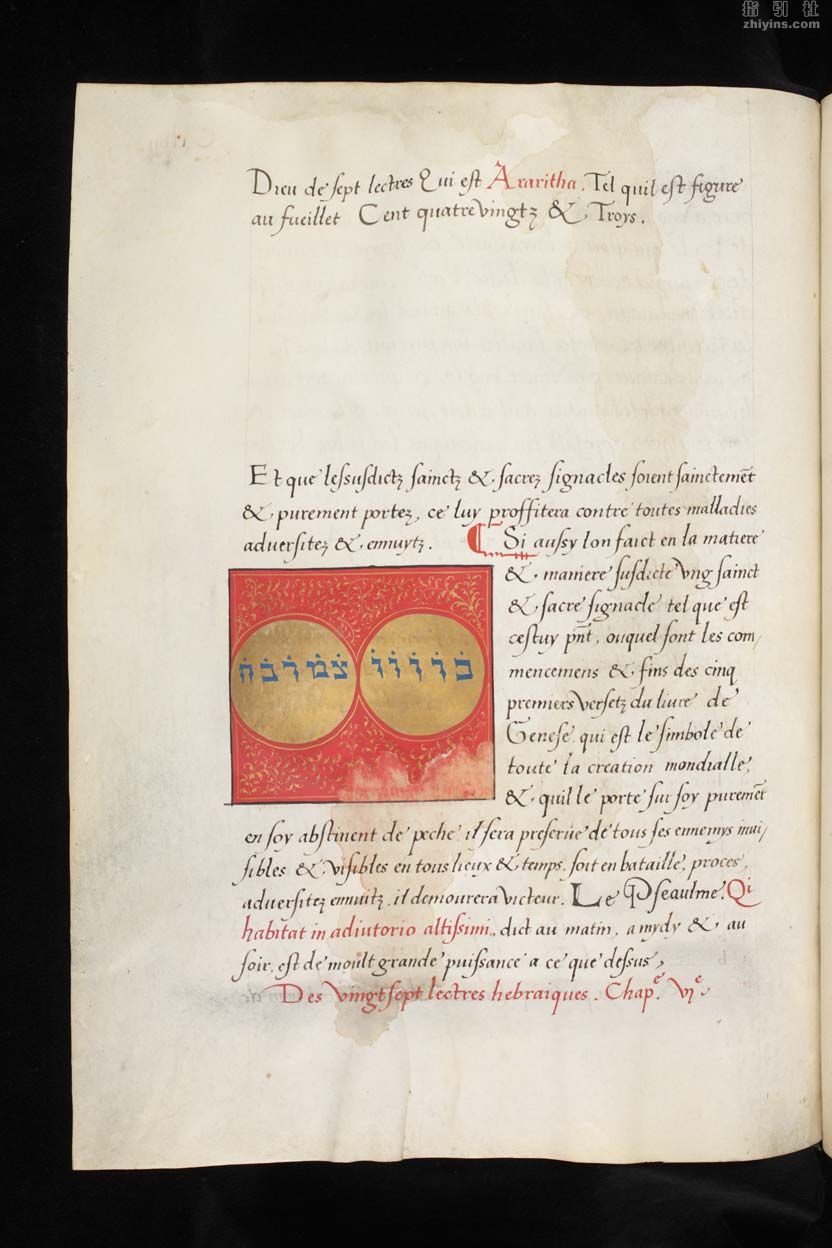 指引社
zhiyins.com
Dieu de sept lectres Qui est Araritha. Tel quil est figure
au fueillet Cent quatre vingtz & Troys.
Et que lessusdictz sainctz & sacrez signacles soient sainctemẽt
& purement portez, ce luy proffitera contre toutes malladies
adversitez & ennuytz. Si aussy lon faict en la matiere
& maniere susdicte ung sainct
& sacre signacle tel que est
cestuy pñt, ouquel sont les com/
mencemens & fins des cinq
premiers versetz du livre de
Genese. qui est le simbole de
toute la creation mondialle,
& quil le porte sur soy puremẽt
בווווו צמרבח
en soy abstinent de peche, il sera preserve de tous ses ennemys invi/
sibles & visibles en tous lieux & temps, soit en bataille, proces,
adversitez ennuitz, il demourera victeur. Le Pseaulme. Qi
habitat in adiutorio altissimi, dict au matin, a mydy & au
soir, est de moult grande puissance a ce que dessus,
Des vingt sept lectres hebraiques. Chap.e vi.e